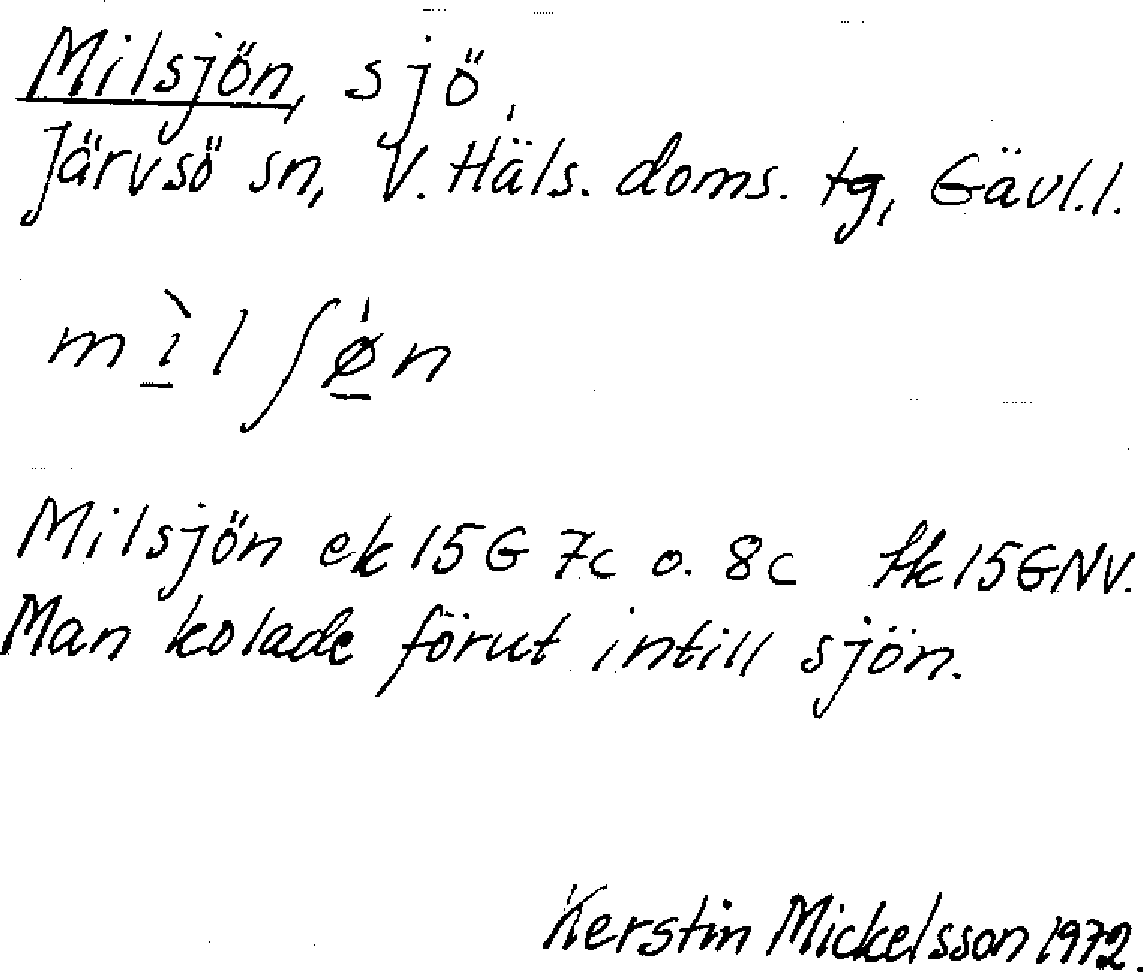 Milsjön, sjö,
Järvsö sn, V. Häls. doms. tg, Gävl.l.
mìlʃǿn
Milsjön ek 15G 7c o. 8c tk 15GNV.
Man kolade förut intill sjön.
Kerstin Mickelsson 1972.